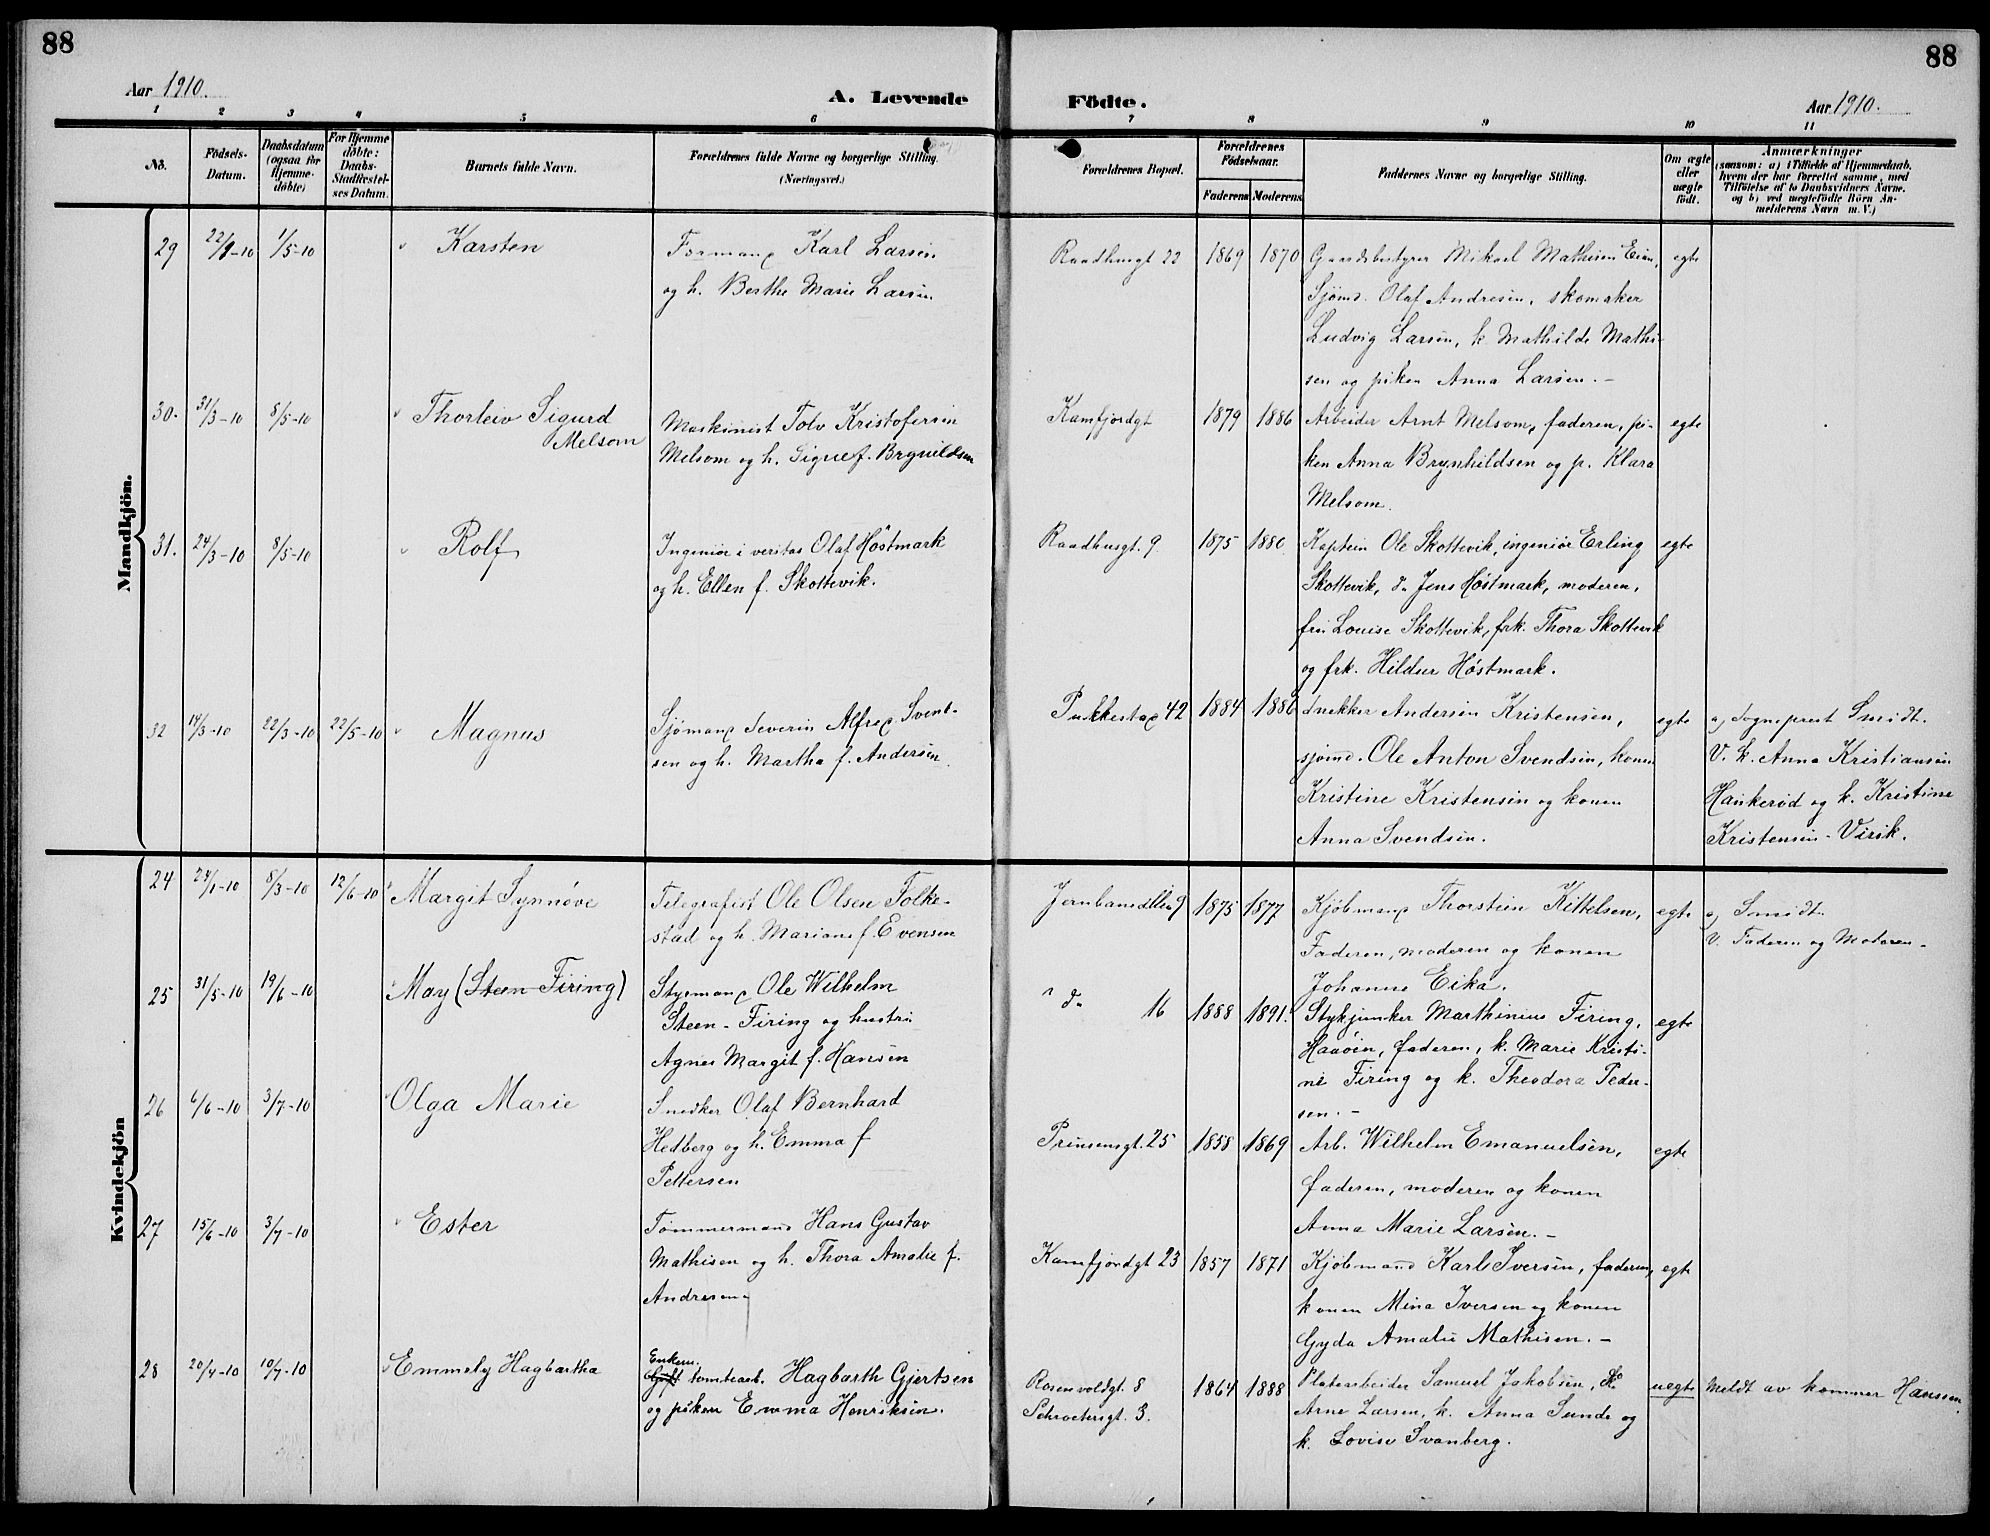 88
88
Aar 1910.
A. Levende Födte.
Aar 1910.
1 2 3 4 5 6 7 8 9 10 11
No. Födsels-Datum. Daabsdatum (ogsaa for Hjemme-döbte) For Hjemme döbte: Daabs-Stadfæstel-ses Datum. Barnets fulde Navn. Forældrenes fulde Navne og borgerlige Stilling. (Næringsvei.) Forældrenes Bopæl. Forældrenes Födselsaar. Faderens Moderens Faddernes Navne og borgerlige Stilling. Om ægte eller uægte födt. Anmærkninger (saasom: a) i Tilfælde af Hjemmedaab, hvem der har forrettet samme, med Tilföielse af to Daabsvidners Navne. og b) ved uægtefödte Börn An-melderens Navn m. V.)
Mandkjön.
29 1/5-10 Karsten Formand Karl Larsen Raadhusgt 22 1869 1870 Gaardsbestyrer Mikael Mathisen egte
og h. Berthe Marie Larsen Sjømd. Olaf Andresen, skomaker
Ludvig Larsen, k. Mathilde Mathi-
sen og piken Anna Larsen. -
30. 31/3-10 8/5-10 Thorleiv Sigurd Maskinist Tolv Kristofersen Kamfjordgt 1879 1886 Arbeider Arnt Melsom, faderen, pi- egte
Melsom Melsom og h. Signe f. Brynildsen ken Anna Brynhildsen og p. Klara
Melsom.
31. 24/3-10 8/5-10 Rolf Ingeniør i veritas Olaf Høstmark Raadhusgt. 9 1875 1880 Kaptein Ole Skottevik, ingeniør Erling egte
og h. Ellen f. Skottevik. Skottevik, do Jens Høstmark, moderen,
fru Louise Skottevik, frk. Thora Skottevik
og frk. Hildur Høstmark.
32 14/3-10 22/3-10 22/5-10 Magnus Sjømand Severin Alfred Svend- Pukkestad 42 1884 1886 Snekker Andersen Kristensen, egte a) Sogneprest Smidt.
sen og h. Martha f. Andersen. sjømd. Ole Anton Svendsen, konen V. k. Anna Kristiansen
Kristine Kristensen og konen Haukerød og k. Kristine
Anna Svendsen. Kristensen - Virik.
Kvindekjön
24 24/1-10 8/3-10 12/6-10 Margit Synnøve Telegrafist Ole Olsen Folke- Jernbanealleen 9 1875 1877 Kjøbmand Thorstein Kittelsen, egte a) Smidt.
stad og h. Mariane f. Evensen Faderen, moderen og konen V. Faderen og Moderen -
Johanne Eika.
25 31/5-10 19/6-10 May (Steen Firing) Styrmand Ole Wilhelm " do 16 1888 1891. Stykjunker Marthinius Firing, egte
Steen-Firing og hustru Haaøen, faderen, k. Marie Kristi-
Agnes Margit f. Hansen ne Firing og k. Theodora Peder-
sen. -
26 6/6-10 3/7-10 Olga Marie Snedker Olaf Bernhard
Hedberg og h. Emma f Prinsensgt. 25 1858 1869 Arb. Wilhelm Emanuelsen, egte
Pettersen faderen, moderen og konen
Anna Marie Larsen. -
27 15/6-10 3/7-10 Ester Tømmermand Hans Gustav
Mathisen og h. Thora Amalie f. Kamfjordgt 23 1857 1871 Kjøbmand Karl Iversen, faderen, egte
Andresen konen Mina Iversen og konen
Gyda Amalie Mathisen. -
28 20/4-10 10/7-10 Emmely Hagbartha Enkem.
Gift tomtearb. Hagbarth Gjertsen Rosenvoldgt. 8 1864 1888 Platearbeider Samuel Jakobsen, do uegte Meldt av kommer Hanssen.
og piken Emma Henriksen. Schrøtersgt. 3. Arne Larsen, k. Anna Sunde og
k. Lovise Svanberg.